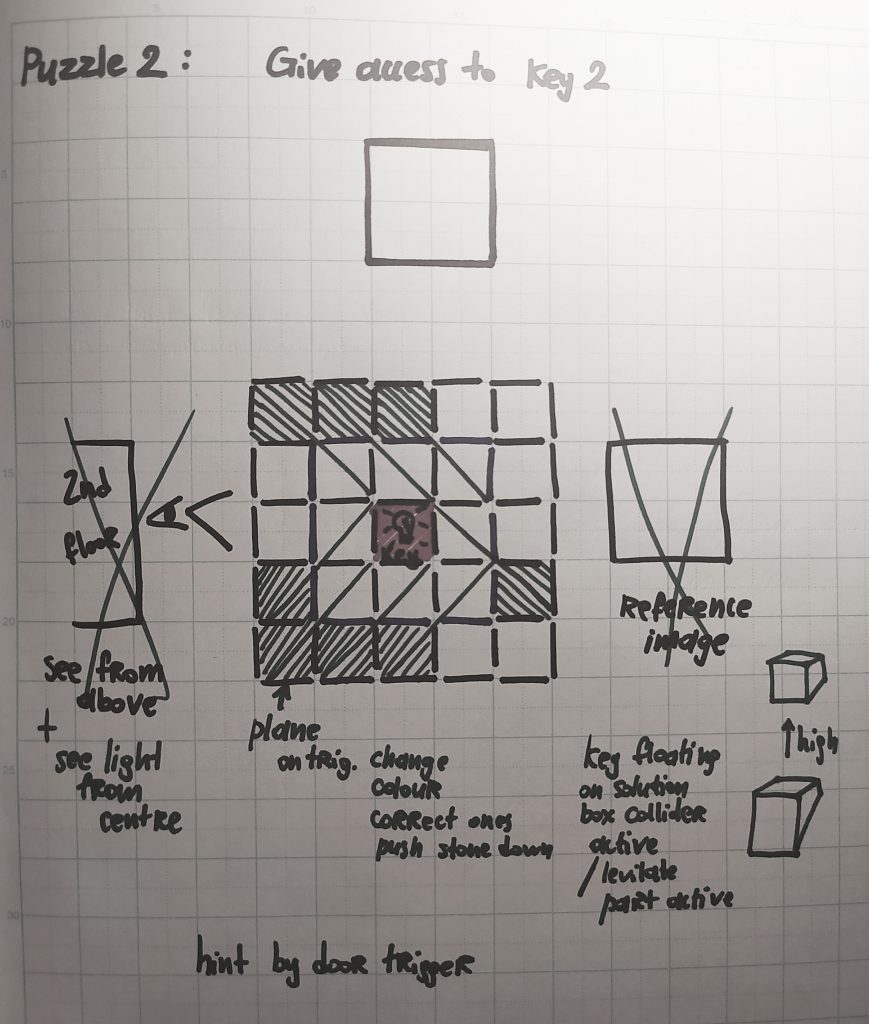 Puzzle 2: Give access to Key 2
2nd
floor
Key
see from
above
+
see light
from
centre
plane
on trig. change
colour
correct ones
push stone down
Reference
image
key floating
on solution
box collider
active
/levitate
part active
high
hint by door trigger
5
10
15
20
25
30